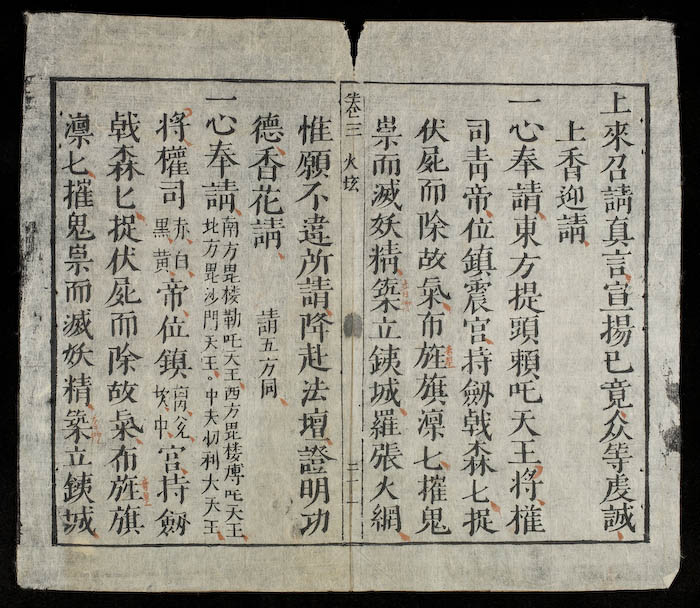 上來召請真言宣揚已竟众等虔誠
上香迎請
一心奉請東方提頭頼吒天王将權
司青帝位鎮震宫持劔戟森七捉
伏屍而除故氣布旌旗凛七摧鬼
祟而滅妖精築立鉄城羅張火網
卷三 火坛
惟願不違所請降赴法壇證明功
德香花請 請五方同
一心奉請南方毘楼勒吒天王西方毘楼愽吒天王
北方毘沙門天王。中央忉利大天王
将權司赤白黒黄帝位鎮离兊坎中宫持劔
戟森七捉伏屍而除故氣布旌旗
凛七摧鬼祟而滅妖精築立鉄城